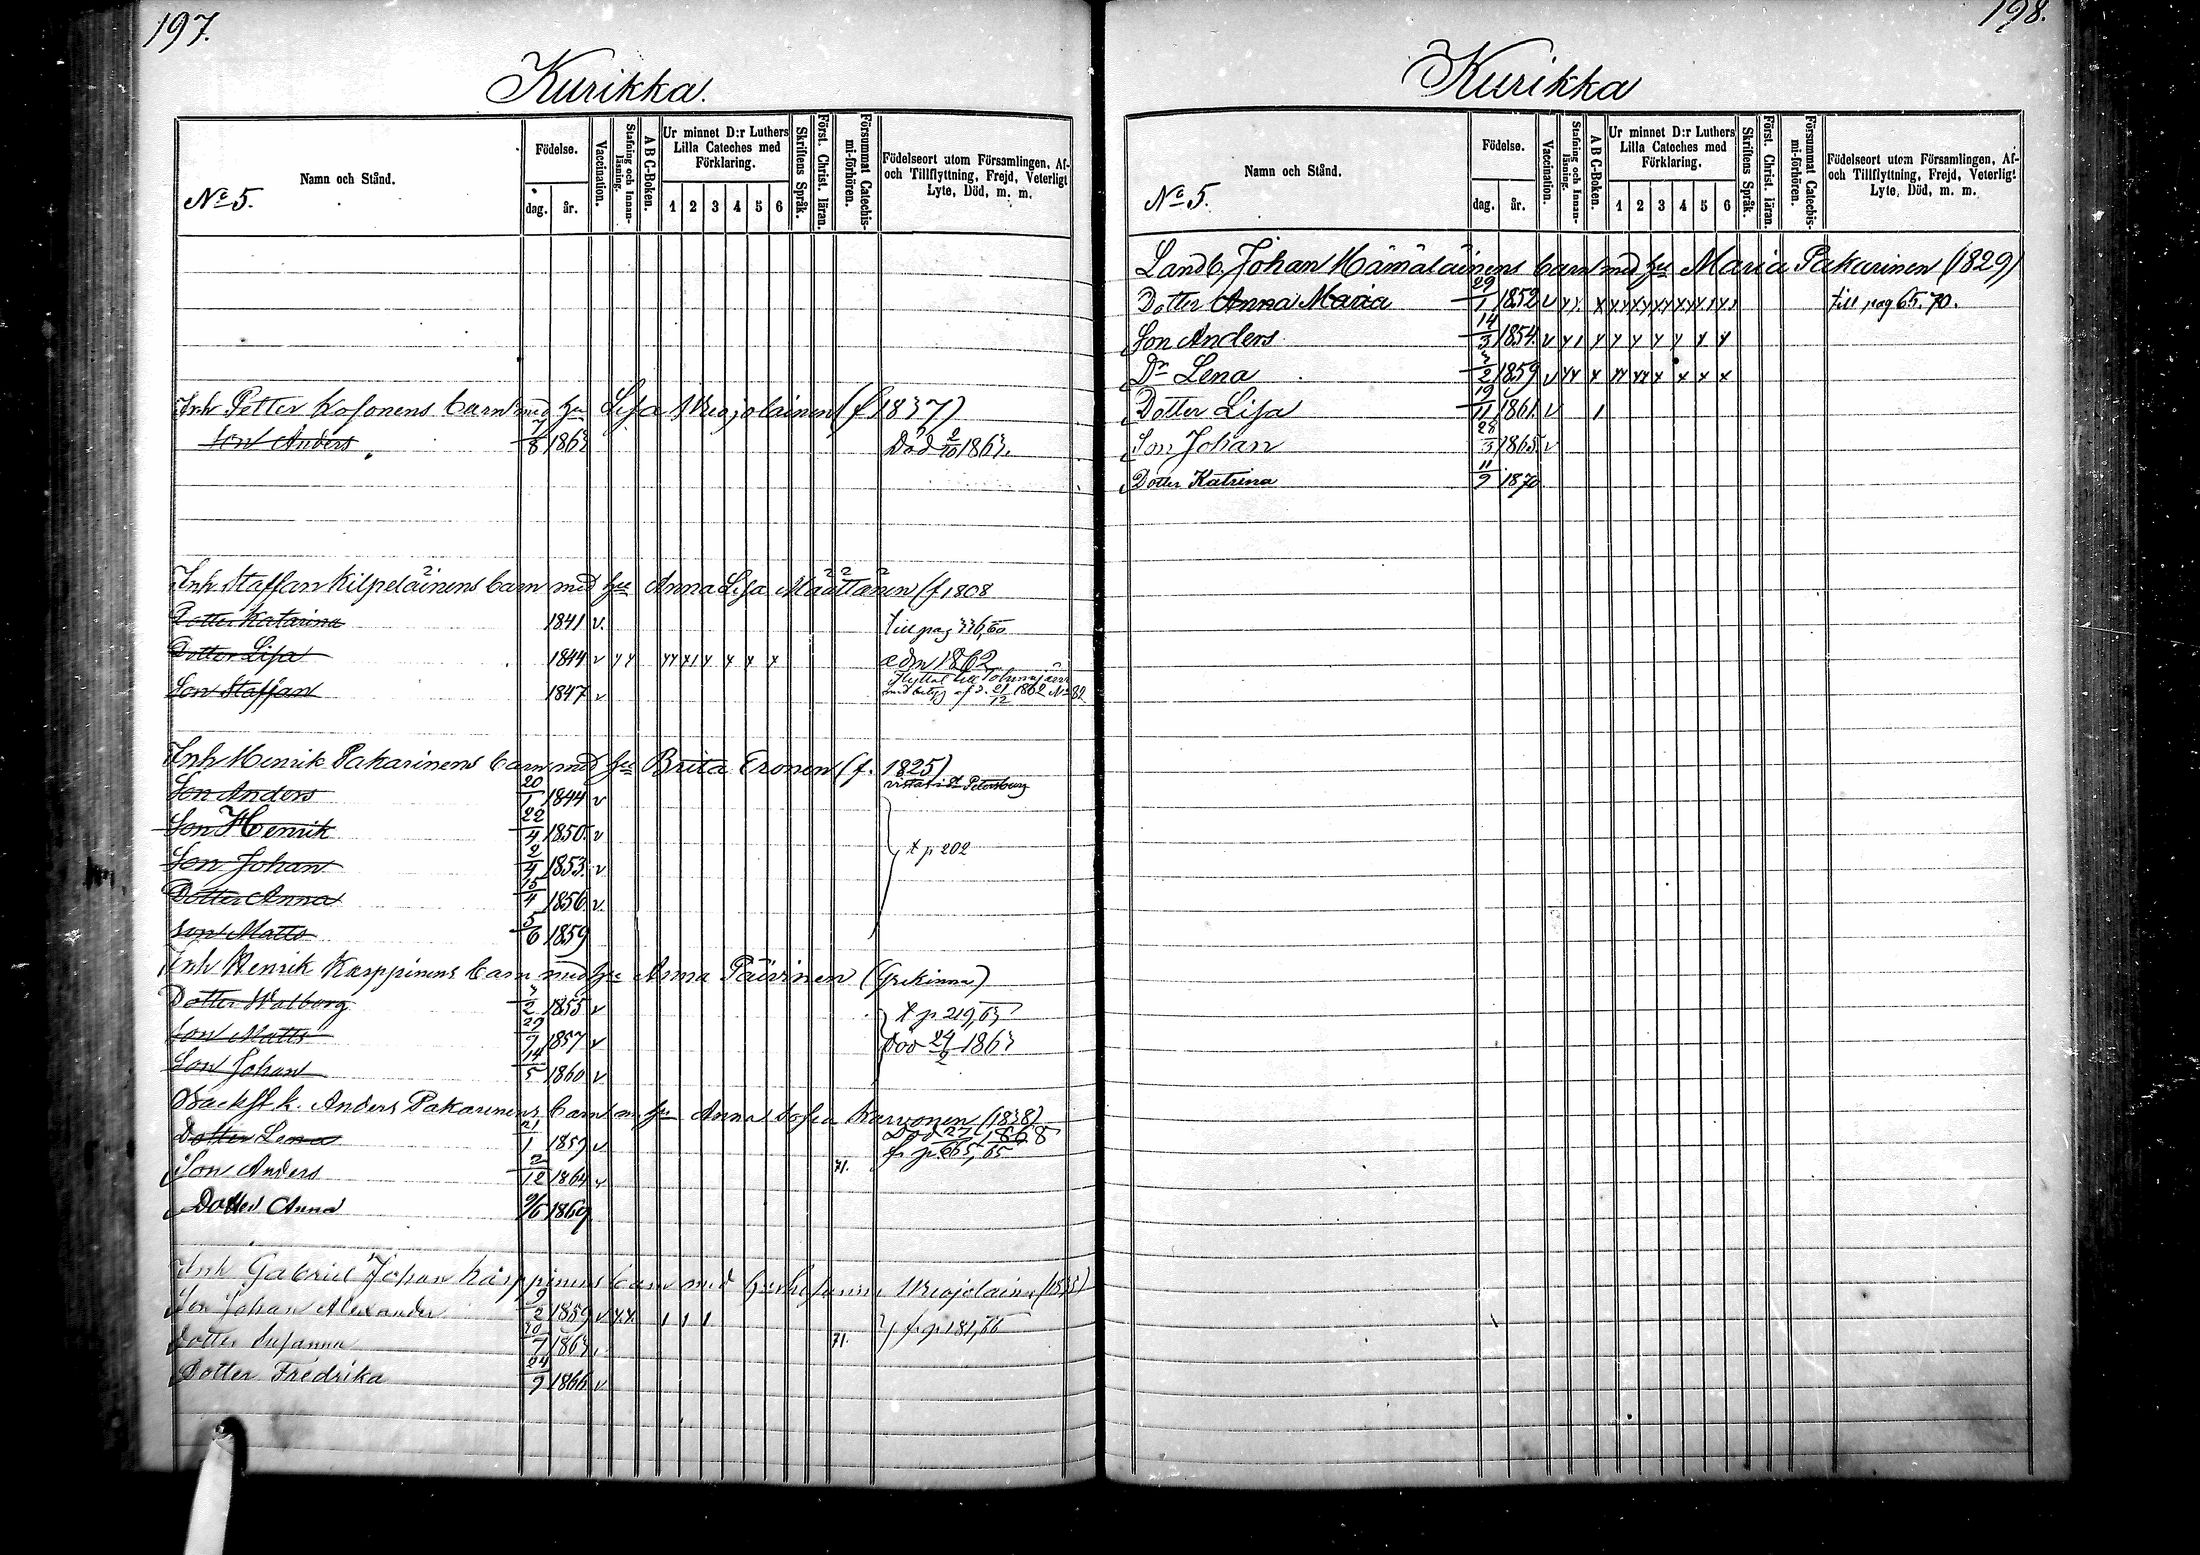 197.
Kurikka.
No 5.
Namn och Stånd.
Födelse.
dag. år.
Vaccination.
Stafning och Innan-läsning.
A B C-Boken.
Ur minnet D:r Luthers Lilla Cateches med Förklaring.
1 2 3 4 5 6
Skriftens Språk.
Först. Christ. läran.
Försummat Catechis-mi-förhören.
Födelseort utom Församlingen, Af- och Tillflyttning, Frejd, Veterligt Lyte, Död, m. m.
Inh Petter Kosonens barn med hu Lisa (f 1837)
Son Anders 7/8 1863 Död 2/10 1863.
Inh Staffan Kilpeläinens barn med hu Anna Lisa Määttänen (f 1808
Dotter Katarina 1841 v. till pag 336,60
Dotter Lisa 1844 v adm 1862
Son Staffan 1847 v Flyttat till Tohmajärvi med betyg af d. 21/12 1862 No 82
Inh Henrik Pakarinens barn med hu Brita Eronen (f. 1825)
Son Anders 20/1 1844 v vistas i St Petersburg
Son Henrik 22/4 1850. v
Son Johan 2/4 1853. v t p 202
Dotter Anna 15/4 1856 v.
Son Matts 5/6 1859
Inh Henrik Karppinens barn med hu Anna Päivinen (Grekinna)
Dotter Walborg 3/2 1855 v t p 219,63
Son Matts 29/9 1857 v Död 24/2 1863
Son Johan 14/5 1860 v
Backst.k. Anders Pakarinens barn m hu Anna Sofia Karvonen (1838)
Dotter Lena 21/1 1859 v Död 27/1 1868
Son Anders 2/12 1864 v 71. fr p. 665, 65
Dotter Anna 9/6 1869
Inh Gabriel Johan Karppinens barn med hu
Son Johan Alexander 9/2 1859 v fr p 181,66
Dotter Susanna 30/7 1863 v 71.
Dotter Fredrika 24/9 1866 v
198.
Kurikka
No 5.
Namn och Stånd.
Födelse.
dag. år.
Vaccination.
Stafning och Innan-läsning.
A B C-Boken.
Ur minnet D:r Luthers Lilla Cateches med Förklaring.
1 2 3 4 5 6
Skriftens Språk.
Först. Christ. läran.
Försummat Catechis-mi-förhören.
Födelseort utom Församlingen, Af- och Tillflyttning, Frejd, Veterligt Lyte, Död, m. m.
Landb. Johan Hämäläinens barn med hu Maria Pakarinen (1829)
Dotter Anna Maria 29/1 1852 v till pag 65. 70.
Son Anders 14/3 1854. v
Dr Lena 3/2 1859 v
Dotter Lisa 19/11 1861. v
Son Johan 28/3 1865. v
Dotter Katrina 11/9 1870